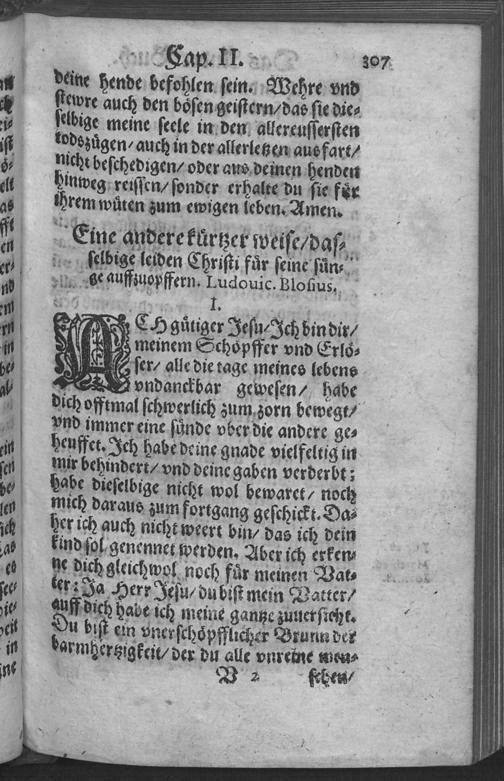 Cap. II. 307
deine hende befohlen sein. Wehre vnd
stewre auch den bösen geistern/das sie die-
selbige meine seele in den allereussersten
todszügen/auch in der allerletzen ausfart/
nicht beschedigen/oder aus deinen henden
hinweg reissen/sonder erhalte du sie für
ihrem wüten zum ewigen leben. Amen.
Eine andere kürtzer weise/das-
selbige leiden Christi für seine sün-
ge auffzuopffern. Ludouic. Blosius.
I.
ACH gütiger Jesu/Ich bin dir/
meinem Schöpffer vnd Erlö-
ser/alle die tage meines lebens
vndanckbar gewesen/ habe
dich offtmal schwerlich zum zorn bewegt/
vnd immer eine sünde vber die andere ge-
heuffet. Ich habe deine gnade vielfeltig in
mir behindert/vnd deine gaben verderbt:
habe dieselbige nicht wol bewaret/ noch
mich daraus zum fortgang geschickt. Da-
her ich auch nicht weert bin/das ich dein
kind sol genennet werden. Aber ich erken-
ne dich gleichwol noch für meinen Vat-
ter: Ja Herr Jesu/du bist mein Vatter/
auff dich habe ich meine gantze zuuersicht.
Du bist ein vnerschöpfflicher Brunn der
barmhertzigkeit/der du alle vnreine men-
V 2 schen/